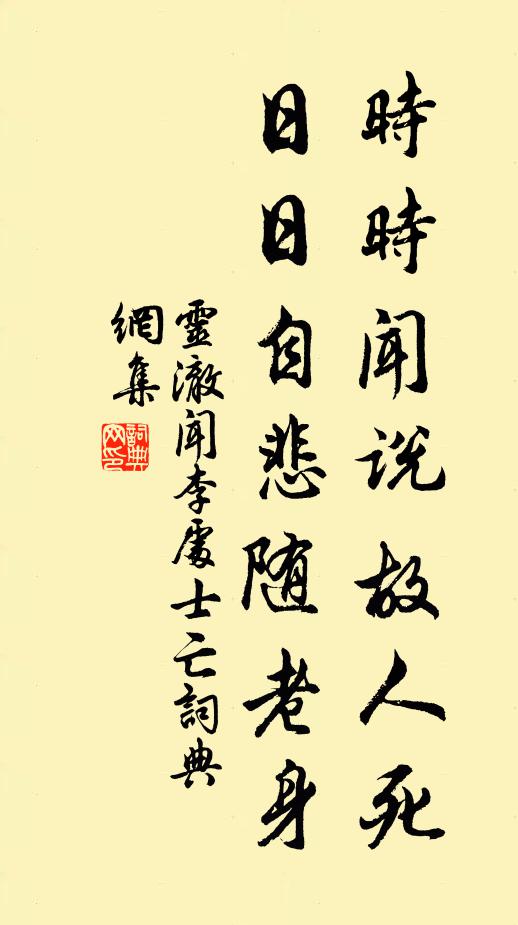 時時聞说故人死
日日自悲随老身
靈澈聞李處士亡詞典
網集
詞典
网印